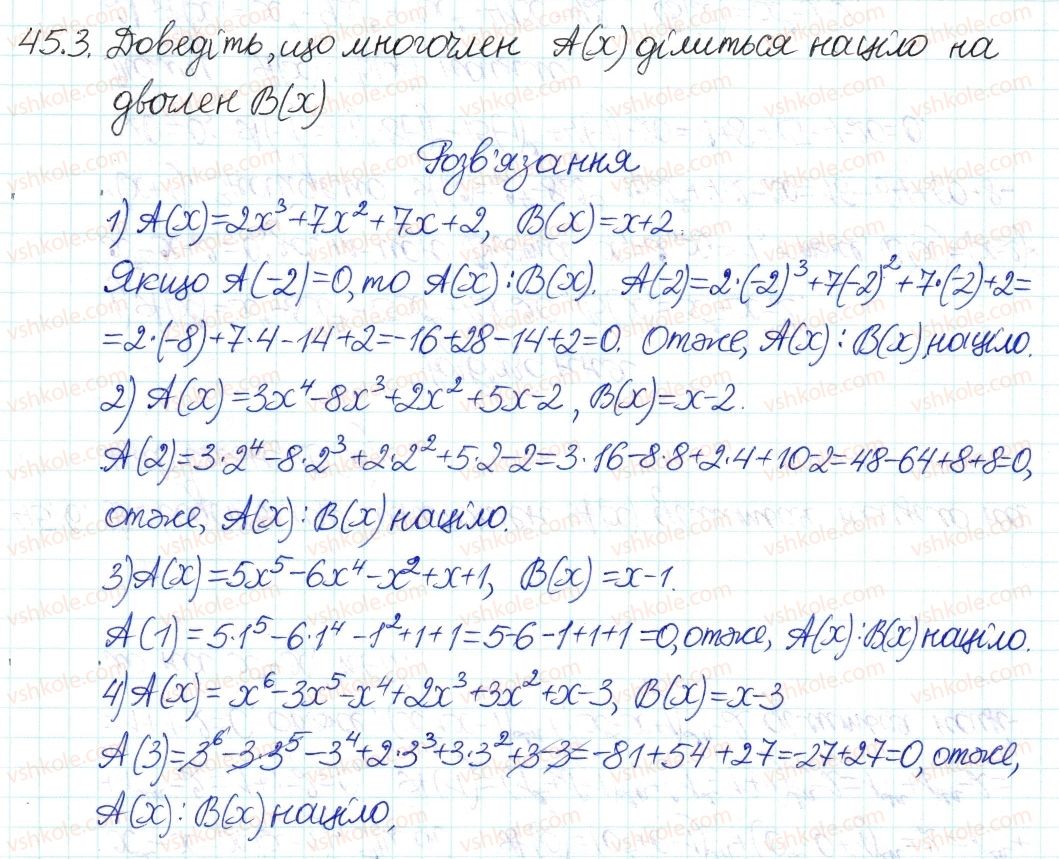 45.3. Доведіть, що многочлен A(x) ділиться націло на
двочлен B(x)
Розв'язання
1) A(x)=2x³+7x²+7x+2, B(x)=x+2.
Якщо A(-2)=0, то A(x):B(x). A(-2)=2·(-2)³+7(-2)²+7·(-2)+2=
=2·(-8)+7·4-14+2=-16+28-14+2=0. Отже, A(x):B(x) націло.
2) A(x)=3x⁴-8x³+2x²+5x-2, B(x)=x-2.
A(2)=3·2⁴-8·2³+2·2²+5·2-2=3·16-8·8+2·4+10-2=48-64+8+8=0,
отже, A(x):B(x) націло.
3) A(x)=5x⁵-6x⁴-x²+x+1, B(x)=x-1.
A(1)=5·1⁵-6·1⁴-1²+1+1=5-6-1+1+1=0, отже, A(x):B(x) націло.
4) A(x)=x⁶-3x⁵-x⁴+2x³+3x²+x-3, B(x)=x-3
A(3)=3⁶-3·3⁵-3⁴+2·3³+3·3²+3-3=-81+54+27=-27+27=0, отже,
A(x):B(x) націло.